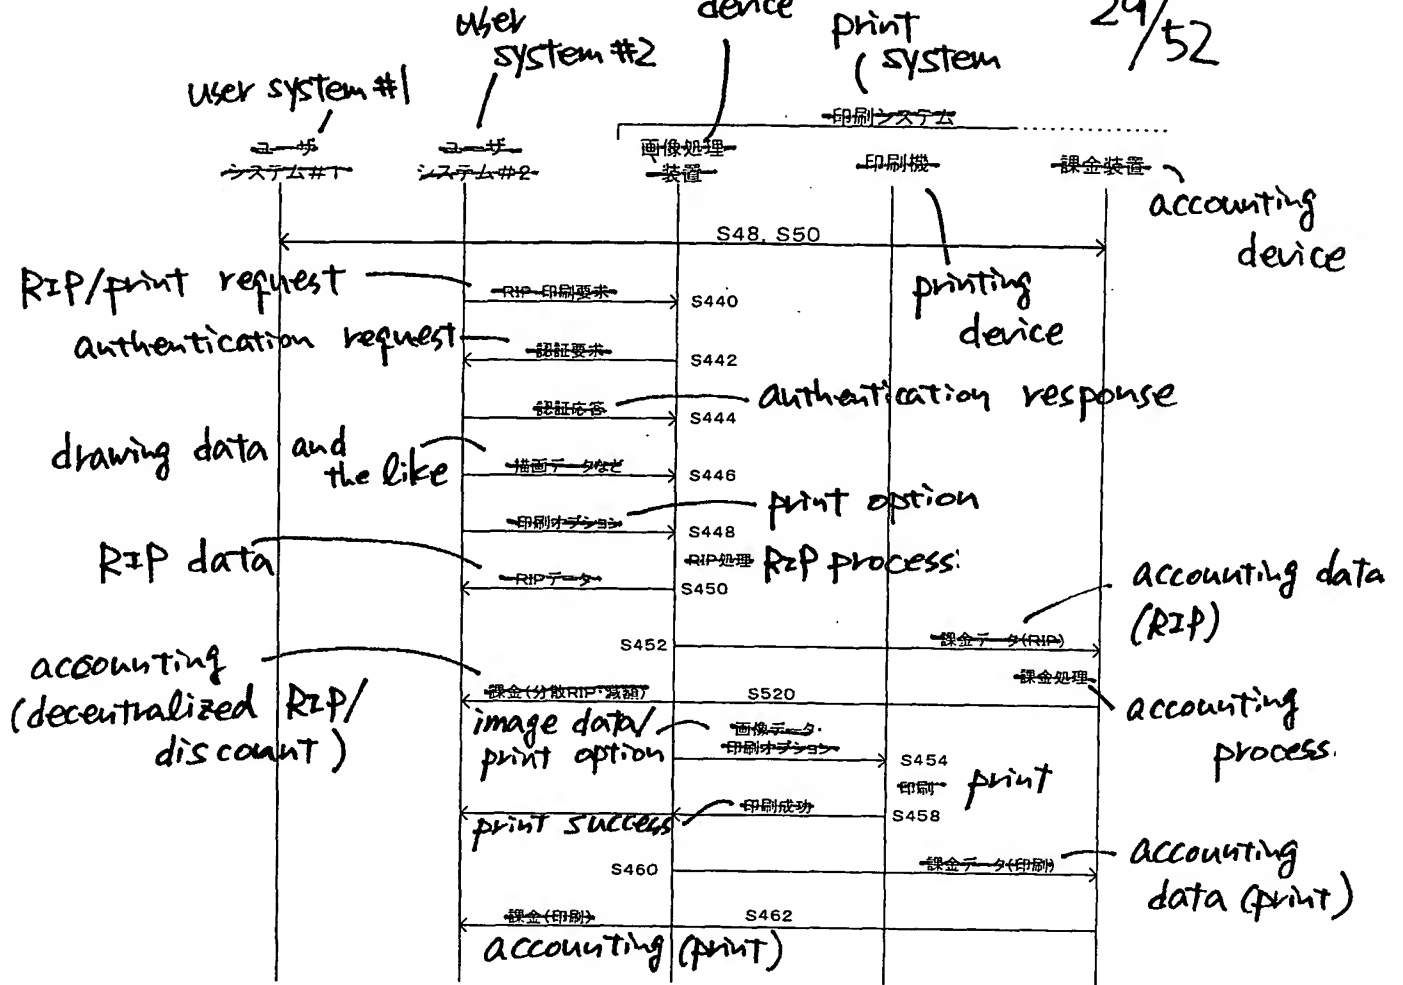 device
29/52
user
system #2
print
system
user system #1
印刷システム
ユーザ
システム#1
ユーザ
システム#2
画像処理
装置
印刷機
課金装置
accounting
device
S48, S50
printing
device
RIP/print request
RIP・印刷要求
S440
authentication request
認証要求
S442
認証応答
S444
authentication response
drawing data and
the like
描画データなど
S446
印刷オプション
S448
print option
RIP処理
RIP process.
RIP data
RIPデータ
S450
accounting data
(RIP)
S452
課金データ(RIP)
課金処理
accounting
process.
accounting
(decentralized RIP/
discount)
課金(分散RIP・減額)
S520
image data/
print option
画像データ・
印刷オプション
S454
印刷
print
印刷成功
S458
print success
S460
課金データ(印刷)
accounting
data (print)
課金(印刷)
S462
accounting (print)